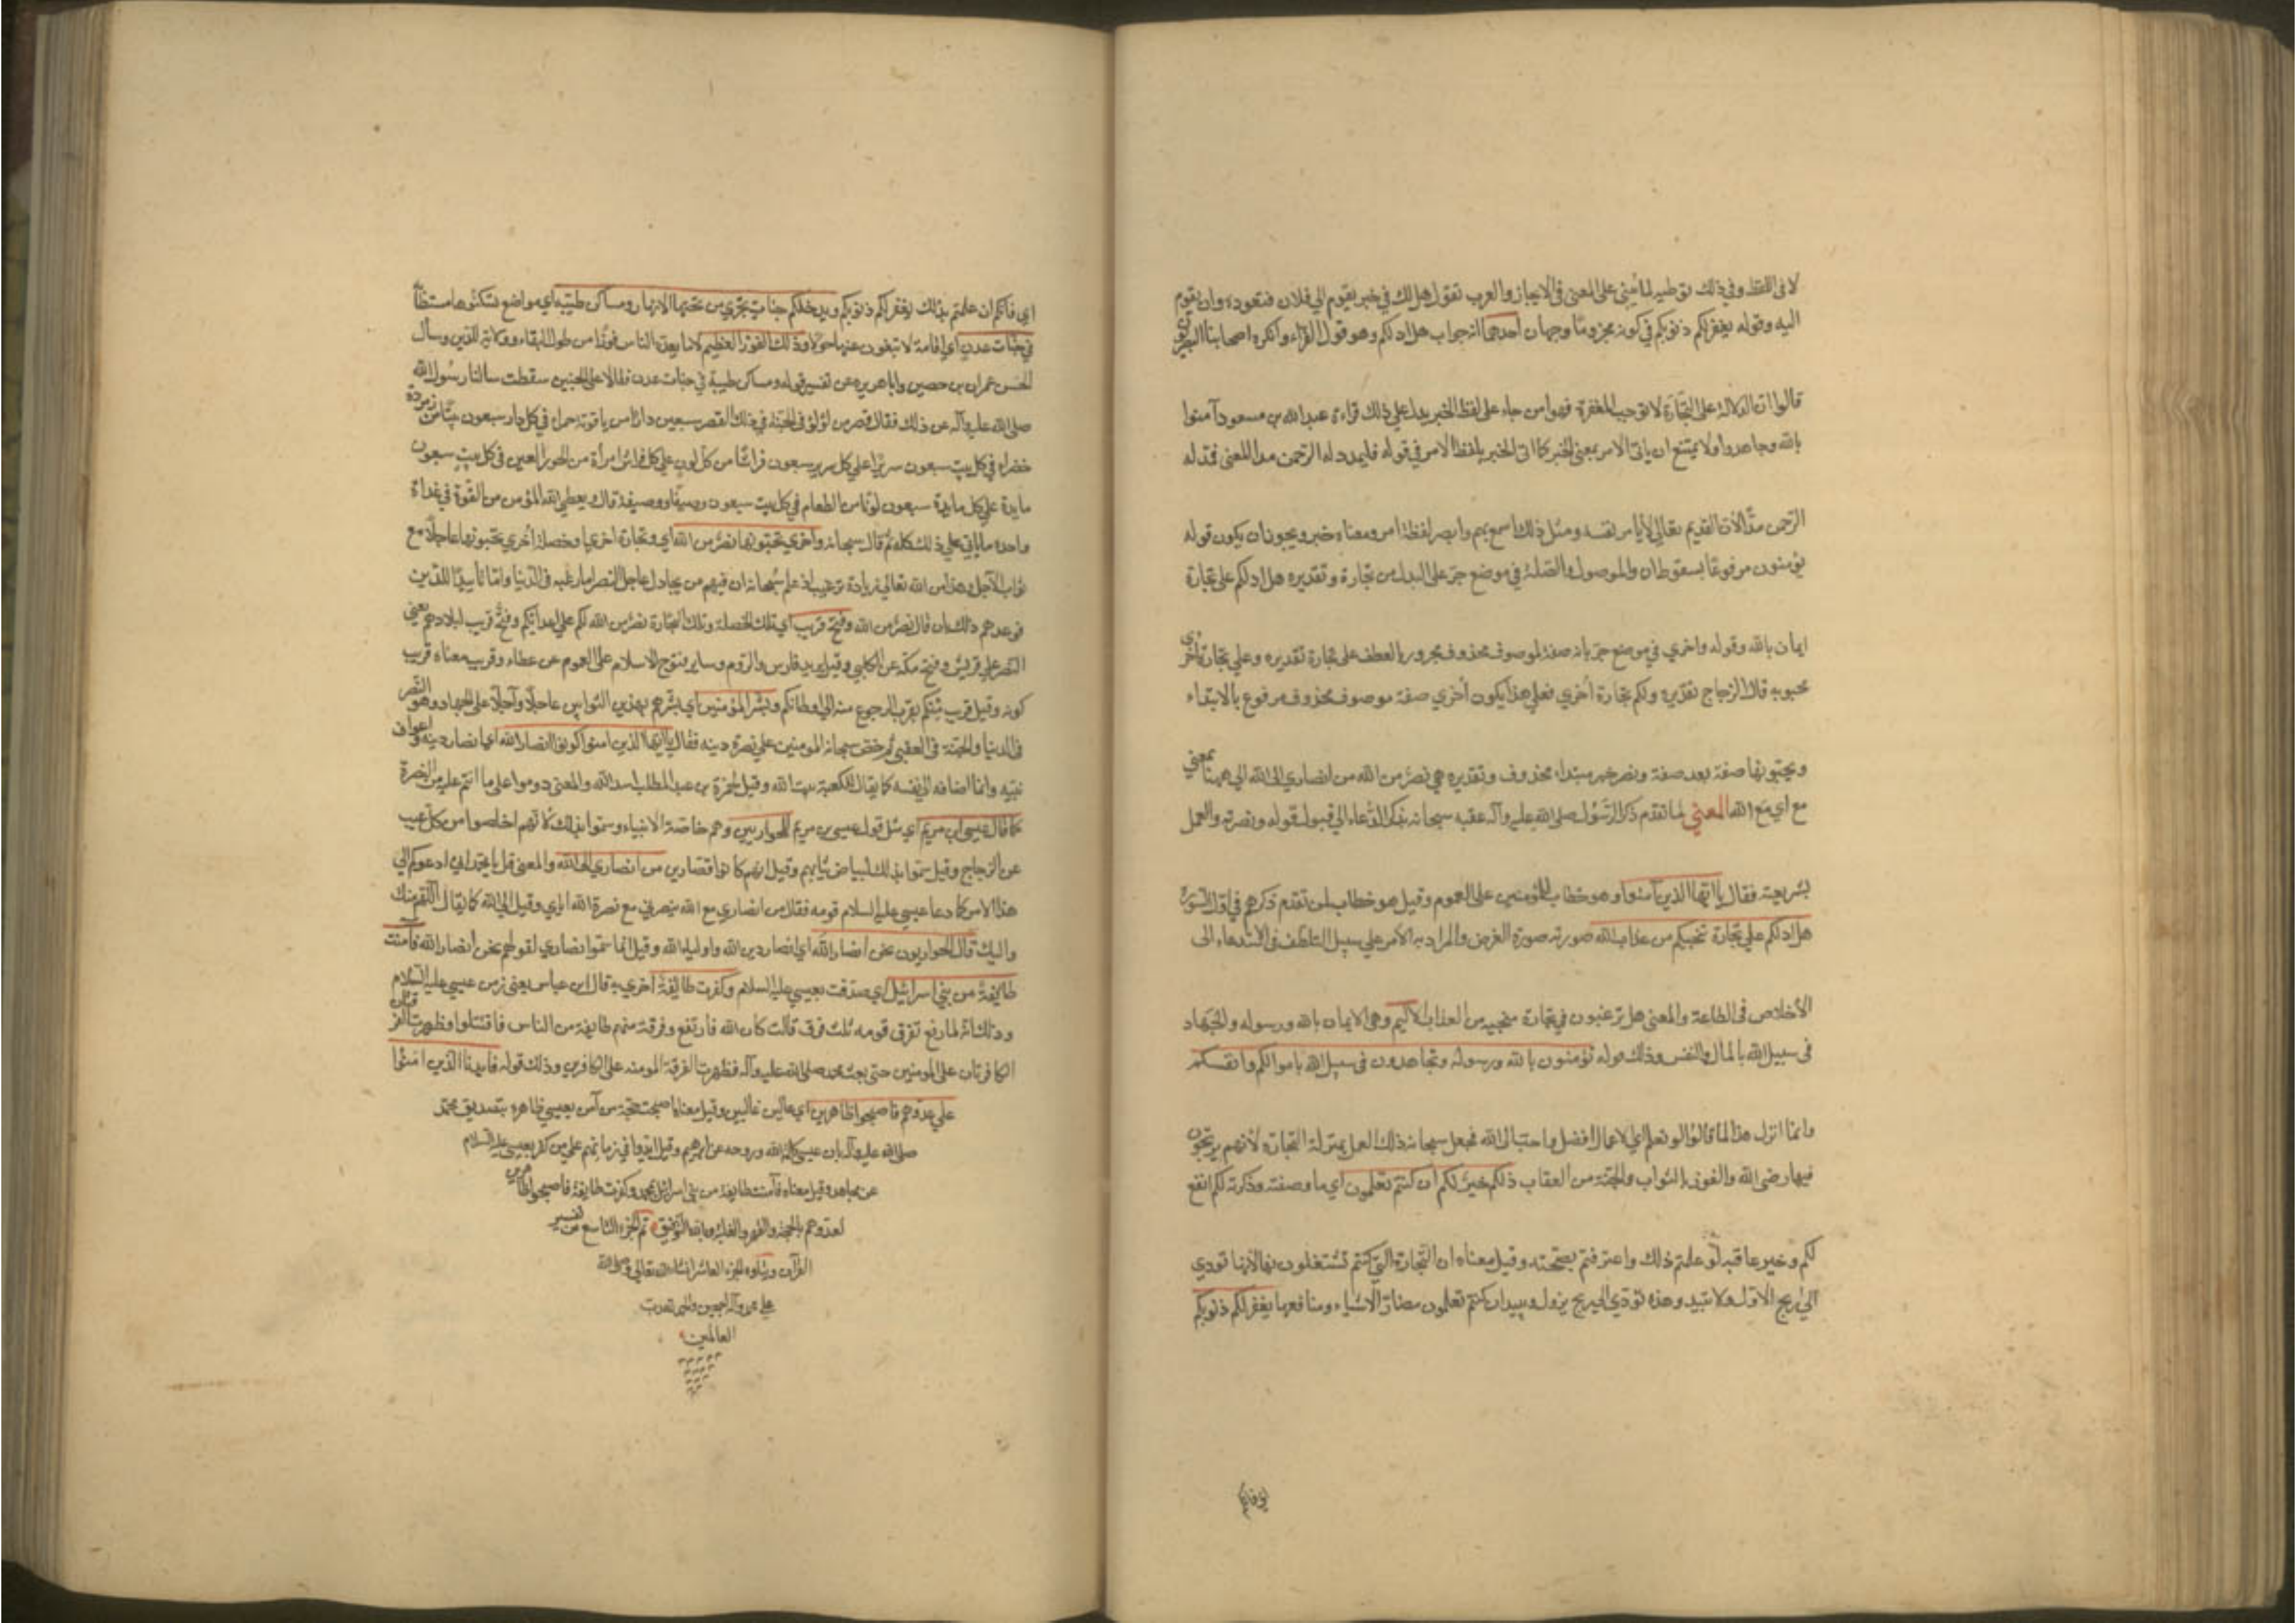 لا في اللفظ وفي ذلك توطيه لما بني على المعنى في الايجاز والعرب تقول هل لك في خير يقوم الى فلان فتعوده وان يقوم
اليه وقوله يغفر لكم ذنوبكم في كونه مجزوما وجهان احدهما انه جواب هل ادلكم وهو قول الفراء وانكره اصحابنا البصريون
قالوا ان الدلالة على التجارة لا توجب المغفرة فهو امر جاء على لفظ الخبر يدل على ذلك قراءة عبد الله بن مسعود آمنوا
بالله وجاهدوا ولا يمتنع ان ياتى الامر بمعنى الخبر كما اتى الخبر بلفظ الامر في قوله فليمدد له الرحمن مدا المعنى فمد له
الرحمن مدا لأن القديم تعالى لا يأمر نفسه ومثل ذلك اسمع بهم وابصر لفظه امر ومعناه خبر ويجوز ان يكون قوله
تؤمنون مرفوعا بسقوط ان والموصول والصلة في موضع جر على البدل من تجارة وتقديره هل ادلكم على تجارة
ايمان بالله وقوله واخري في موضع جر بانه صفة لموصوف محذوف مجرور بالعطف على تجارة تقديره وعلي تجارة اخري
محبوبه قال الزجاج تقديره ولكم تجارة أخري فعلي هذا يكون أخري صفة موصوف محذوف مرفوع بالابتداء
وتحبونها صفة بعد صفة ونصر خبر مبتداء محذوف وتقديره هي نصر من الله من انصاري الى الله الى ههنا بمعني
مع اي مع الله المعني لما تقدم ذكر الرسول صلى الله عليه وآله عقبه سبحانه بذكر الدعاء الي قبول قوله ونصرته والعمل
بشريعته فقال يا ايها الذين آمنوا وهو خطاب للمؤمنين على العموم وقيل هو خطاب لمن تقدم ذكرهم في اول السورة
هل ادلكم علي تجارة تنجيكم من عذاب الله صورته صورة العرض والمراد به الامر علي سبيل التلطف في الاستدعاء الى
الأخلاص في الطاعة والمعنى هل ترغبون في تجارة منجيه من العذاب الاليم وهي الايمان بالله ورسوله والجهاد
في سبيل الله بالمال والنفس وذلك قوله تؤمنون بالله ورسوله وتجاهدون في سبيل الله باموالكم وانفسكم
وانما انزل هذا لما قالوا لو نعلم اي الاعمال افضل واحب الى الله فجعل سبحانه ذلك العمل بمنزلة التجارة لأنهم يربحون
فيها رضى الله والفوز بالثواب والنجاة من العقاب ذلكم خير لكم ان كنتم تعلمون اي ما وصفته وذكرته لكم انفع
لكم وخير عاقبه لو علمتم ذلك واعترفتم بصحته وقيل معناه ان التجارة التي كنتم تشتغلون بها لانها تودي
الي ربح لا يزول ولا يبيد وهذه تودي الي ربح يزول ويبيد ان كنتم تعلمون مضار الاشياء ومنافعها يغفر لكم ذنوبكم
اي فانكم ان علمتم بذلك يغفر لكم ذنوبكم ويدخلكم جنات تجري من تحتها الانهار ومساكن طيبه اي مواضع تسكنونها مستطابة
في جنات عدن اي اقامة لا تبغون عنها حولا وذلك الفوز العظيم لا ما يعده الناس فوزا من طول البقاء وولاية الدنيا وسأل
الحسن عمران بن حصين وابا هريره عن تفسير قوله ومساكن طيبة في جنات عدن فقالا على الخبير سقطت سألنا رسول الله
صلى الله عليه وآله عن ذلك فقال قصر من لؤلؤ في الجنة في ذلك القصر سبعين دارا من ياقوتة حمراء في كل دار سبعون بيتا من زمردة
خضراء في كل بيت سبعون سريرا علي كل سرير سبعون فراشا من كل لون علي كل فراش امرأة من الحور العين في كل بيت سبعون
مايدة علي كل مايدة سبعون لونا من الطعام في كل بيت سبعون وصيفا ووصيفة قال ويعطي الله المؤمن من القوة في غداة
واحده ما ياتي علي ذلك كله ثم قال سبحانه واخري تحبونها نصر من الله اي وتجارة اخري او خصلة أخري تحبونها عاجلا مع
ثواب الآجل وهذا من الله تعالي زيادة ترغيب اذ علم سبحانه ان فيهم من يحاول عاجل النصر اما رغبة في الدنيا واما تأييدا للدين
فوعدهم ذلك بان قال نصر من الله وفتح قريب اي تلك الخصلة وتلك التجارة نصر من الله لكم علي اعدائكم وفتح قريب لبلادهم يعني
النصر علي قريش وفتح مكة عن الكلبي وقيل يريد فارس والروم وساير فتوح الاسلام على العموم عن عطاء وقريب معناه قريب
كونه وقيل قريب منكم يقرب الرجوع منه الى اوطانكم وبشر المؤمنين اي بشرهم بهذين الثوابين عاجلا وآجلا على الجهاد وهو النصر
في الدنيا والجنة في العقبي ثم حض سبحانه المومنين علي نصرة دينه فقال يا ايها الذين امنوا كونوا انصار الله اي انصار دينه واعوان
نبيه وانما اضافه الى نفسه كما يقال للكعبة بيت الله وقيل لحمزة بن عبد المطلب اسد الله والمعنى دوموا على ما انتم عليه من النصرة
كما قال عيسى ابن مريم اي مثل قول عيسى بن مريم للحواريين وهم خاصة الانبياء وسموا بذلك لانهم اخلصوا من كل عيب
عن الزجاج وقيل سموا بذلك لبياض ثيابهم وقيل انهم كانوا قصارين من انصاري الى الله والمعنى قل يا محمد اني ادعوكم الي
هذا الامر كما دعا عيسى عليه السلام قومه فقال من انصاري مع الله ينصرني مع نصرة الله اياي وقيل الى الله كما يقال اللهم منك
واليك قال الحواريون نحن انصار الله اي انصار دين الله واولياء الله وقيل انما سموا نصاري لقولهم نحن أنصار الله فآمنت
طائفة من بني اسرائيل اي صدقت بعيسي عليه السلام وكفرت طايفة أخري به قال ابن عباس يعني زمن عيسي عليه السلام
وذلك انه لما رفع تفرق قومه ثلث فرق فرقة قالت كان الله فارتفع وفرقة منهم طايفة من الناس فاقتتلوا وظهرت الفرقتان
الكافرتان على المومنين حتى بعث محمد صلى الله عليه وآله فظهرت الفرقة المومنه على الكافرين وذلك قوله فايدنا الذين امنوا
علي عدوهم فاصبحوا ظاهرين اي عالين غالبين وقيل معناه اصبحت حجة من آمن بعيسي ظاهرة بتصديق محمد
صلى الله عليه وآله بان عيسى كلمة الله وروحه عن ابرهيم وقيل ايدوا في زمانهم على من كفر بعيسى عليه السلام
عن مجاهد وقيل معناه فآمنت طايفة من بني اسرائيل بمحمد وكفرت طايفة فاصبحوا ظاهرين
لعدوهم بالحجة والقهر والغلبة وبالله التوفيق تم الجزء التاسع من تفسير
القرآن ويتلوه الجزء العاشر انشاء الله تعالى وصلى الله
علي محمد وآله اجمعين والحمد لله رب
العالمين